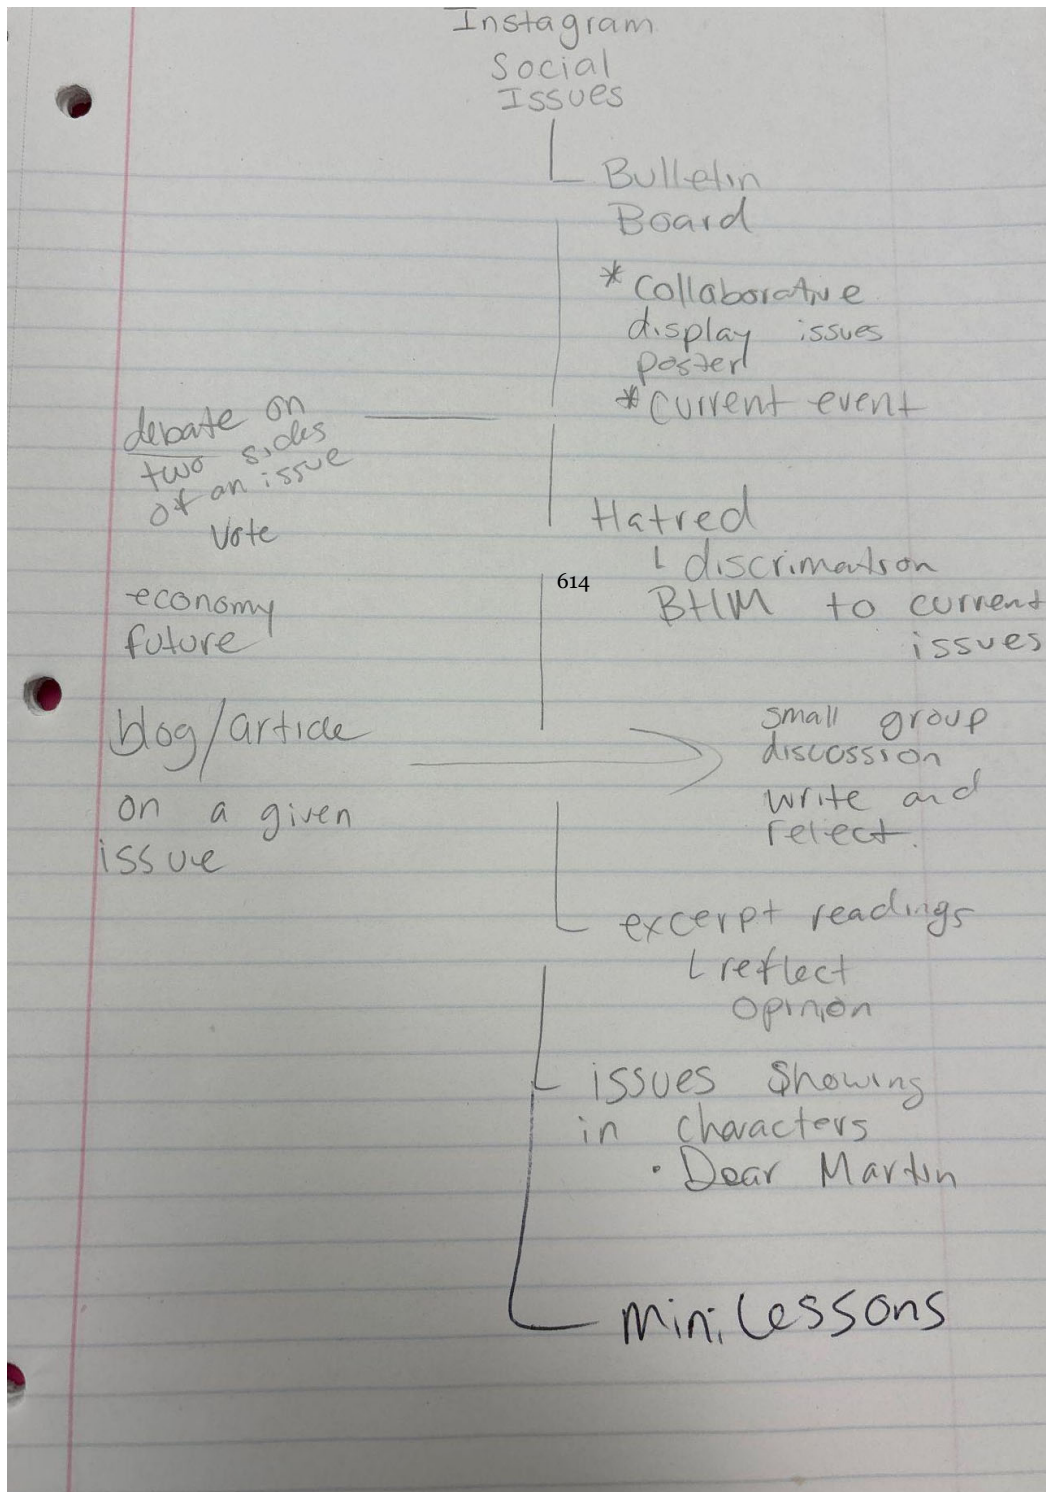 Instagram
Social
Issues
Bulletin
Board
* collaborative
display issues
poster
* current event
debate on
two sides
of an issue
Vote
Hatred
discrimatson
BHM to current
issues
614
economy
future
blog/article
on a given
issue
small group
discussion
write and
relect.
excerpt readings
reflect
opinion
issues showing
in characters
• Dear Martin
mini lessons